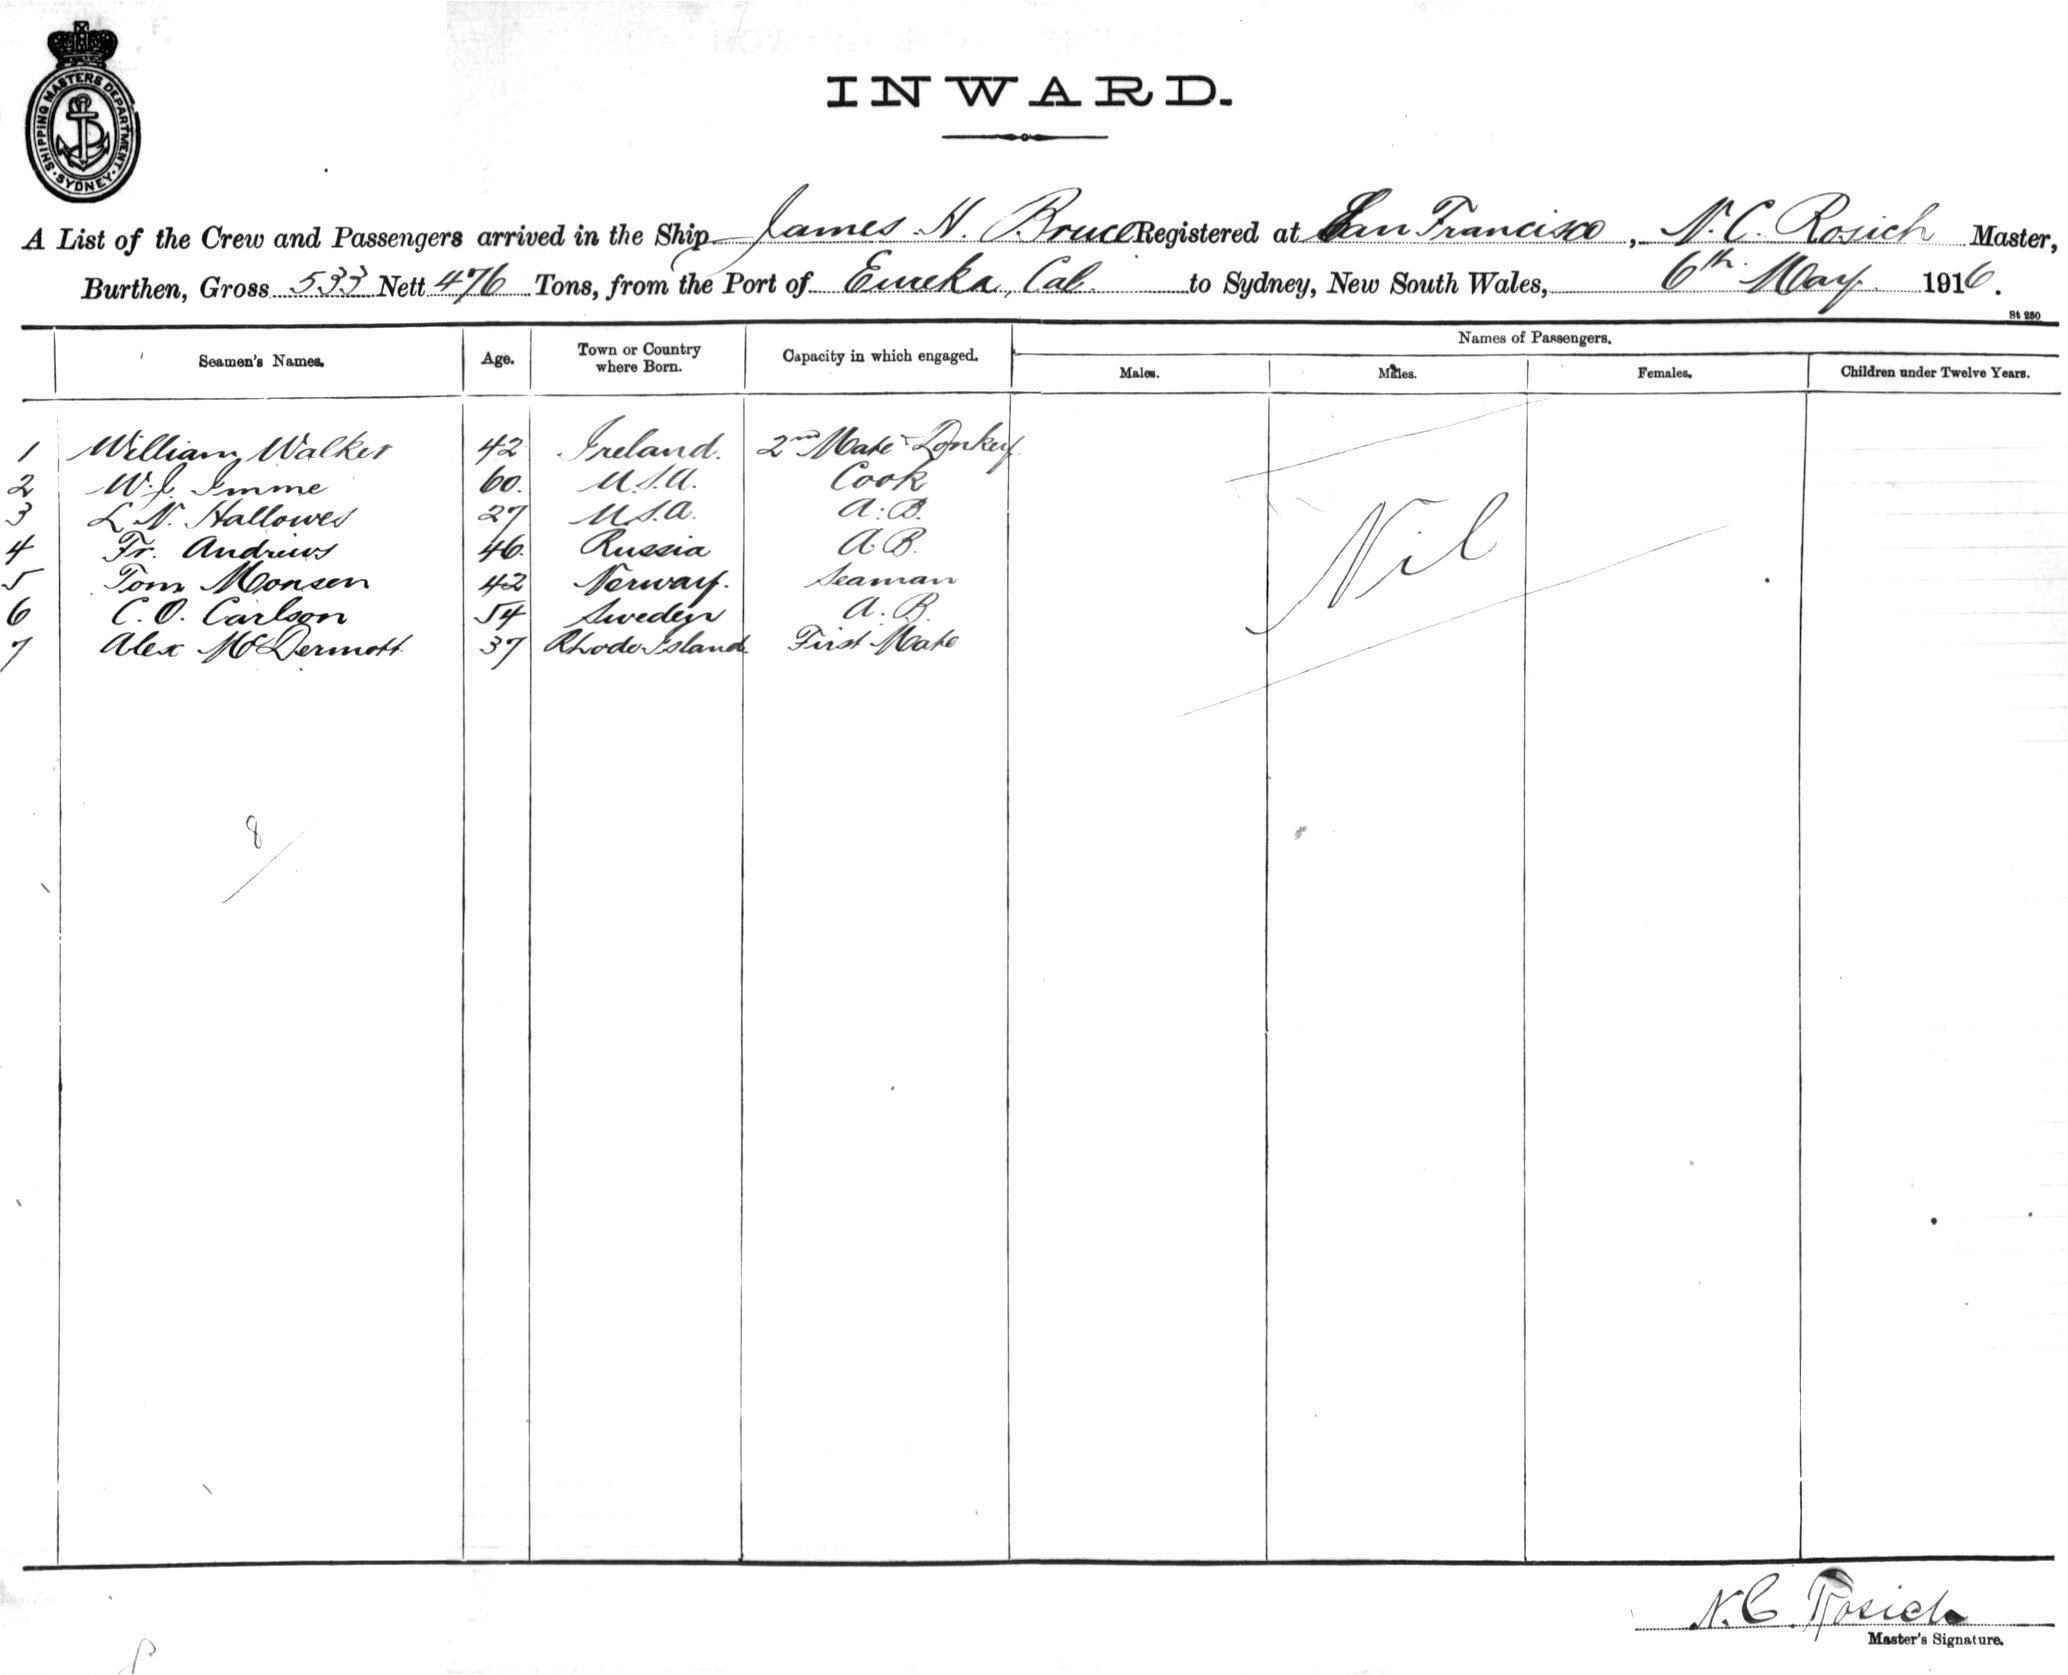 SHIPPING MASTERS DEPARTMENT. SYDNEY.
INWARD.
A List of the Crew and Passengers arrived in the Ship James H. Bruce Registered at San Francisco, N. C. Rosich Master,
Burthen, Gross 533 Nett 476 Tons, from the Port of Eureka, Cal. to Sydney, New South Wales, 6th May. 1916.
St 250
Seamen's Names. Age. Town or Country where Born. Capacity in which engaged. Names of Passengers.
Males. Males. Females. Children under Twelve Years.
1 William Walker 42 Ireland. 2nd Mate Donkey
2 W. J. Imme 60. U.S.A. Cook
3 L. N. Hallowes 27 U.S.A. A.B.
4 Fr. Andrews 46. Russia A.B.
5 Tom Monsen 42 Norway. Seaman
6 C. O. Carlson 54 Sweden A.B.
7 Alex McDermott 37 Rhode Island. First Mate
Nil
8
N. C. Rosich
Master's Signature.